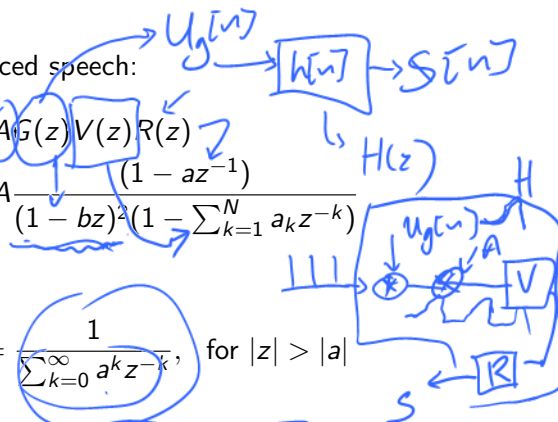 U_g[n]
ced speech:
h[n] → S[n]
AG(z)V(z)R(z)
H(z)
A \frac{(1 - az^{-1})}{(1 - bz)^2(1 - \sum_{k=1}^{N} a_k z^{-k})}
H
u_g[n] A
V
= \frac{1}{\sum_{k=0}^{\infty} a^k z^{-k}}, for |z| > |a|
R
S